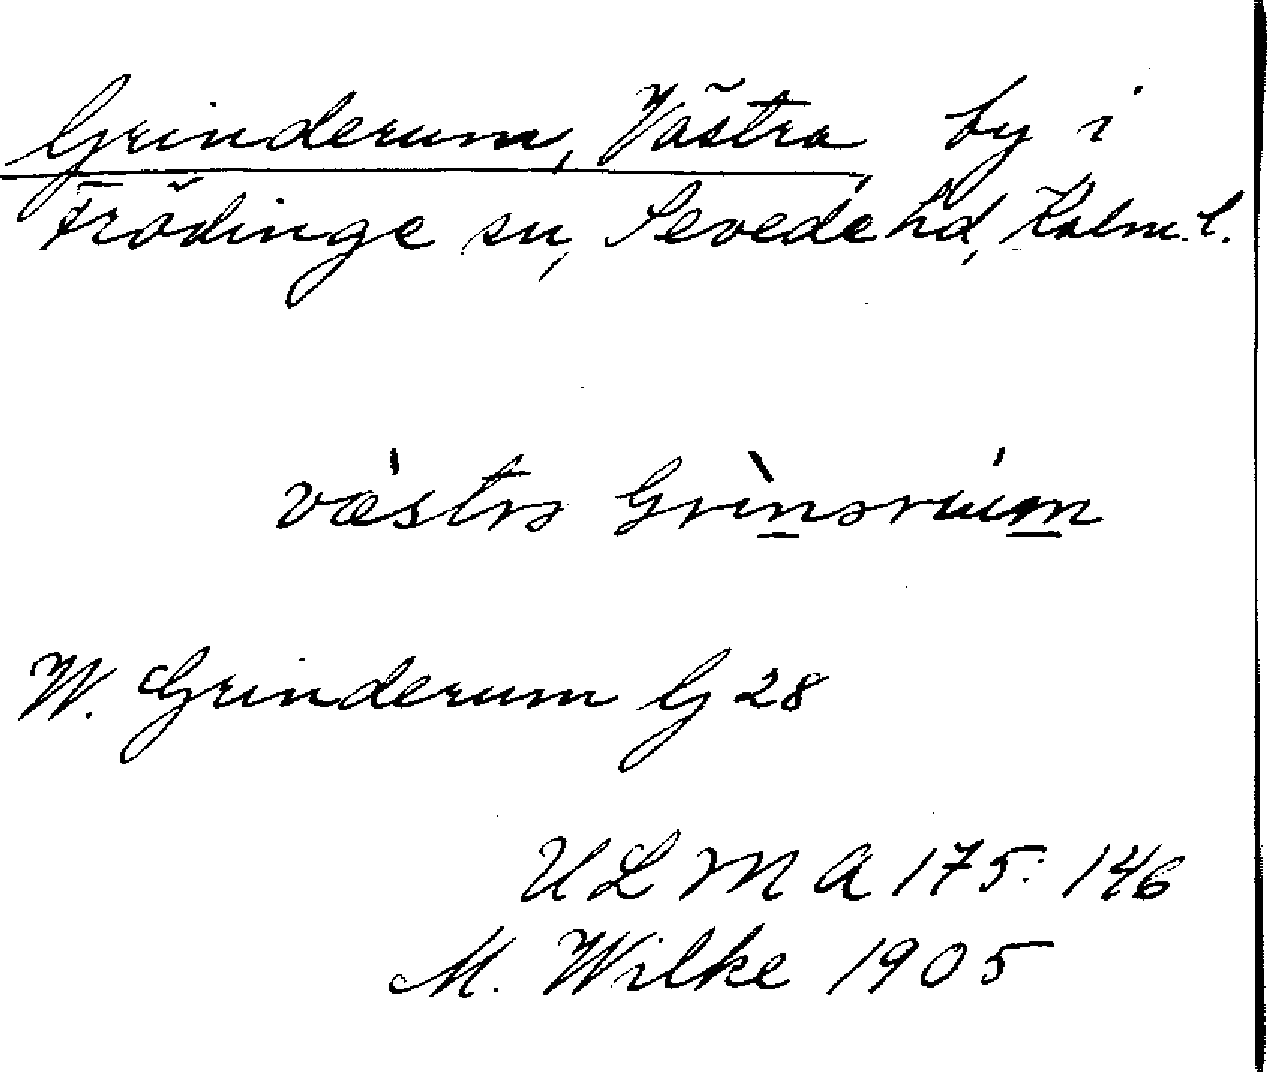 Grinderum, Västra by i
Frödinge sn, Sevede hd, Kalm. l.
væ̍strə Grìnərium
W. Grinderum G 28
ULMA 175:146
M. Wilke 1905